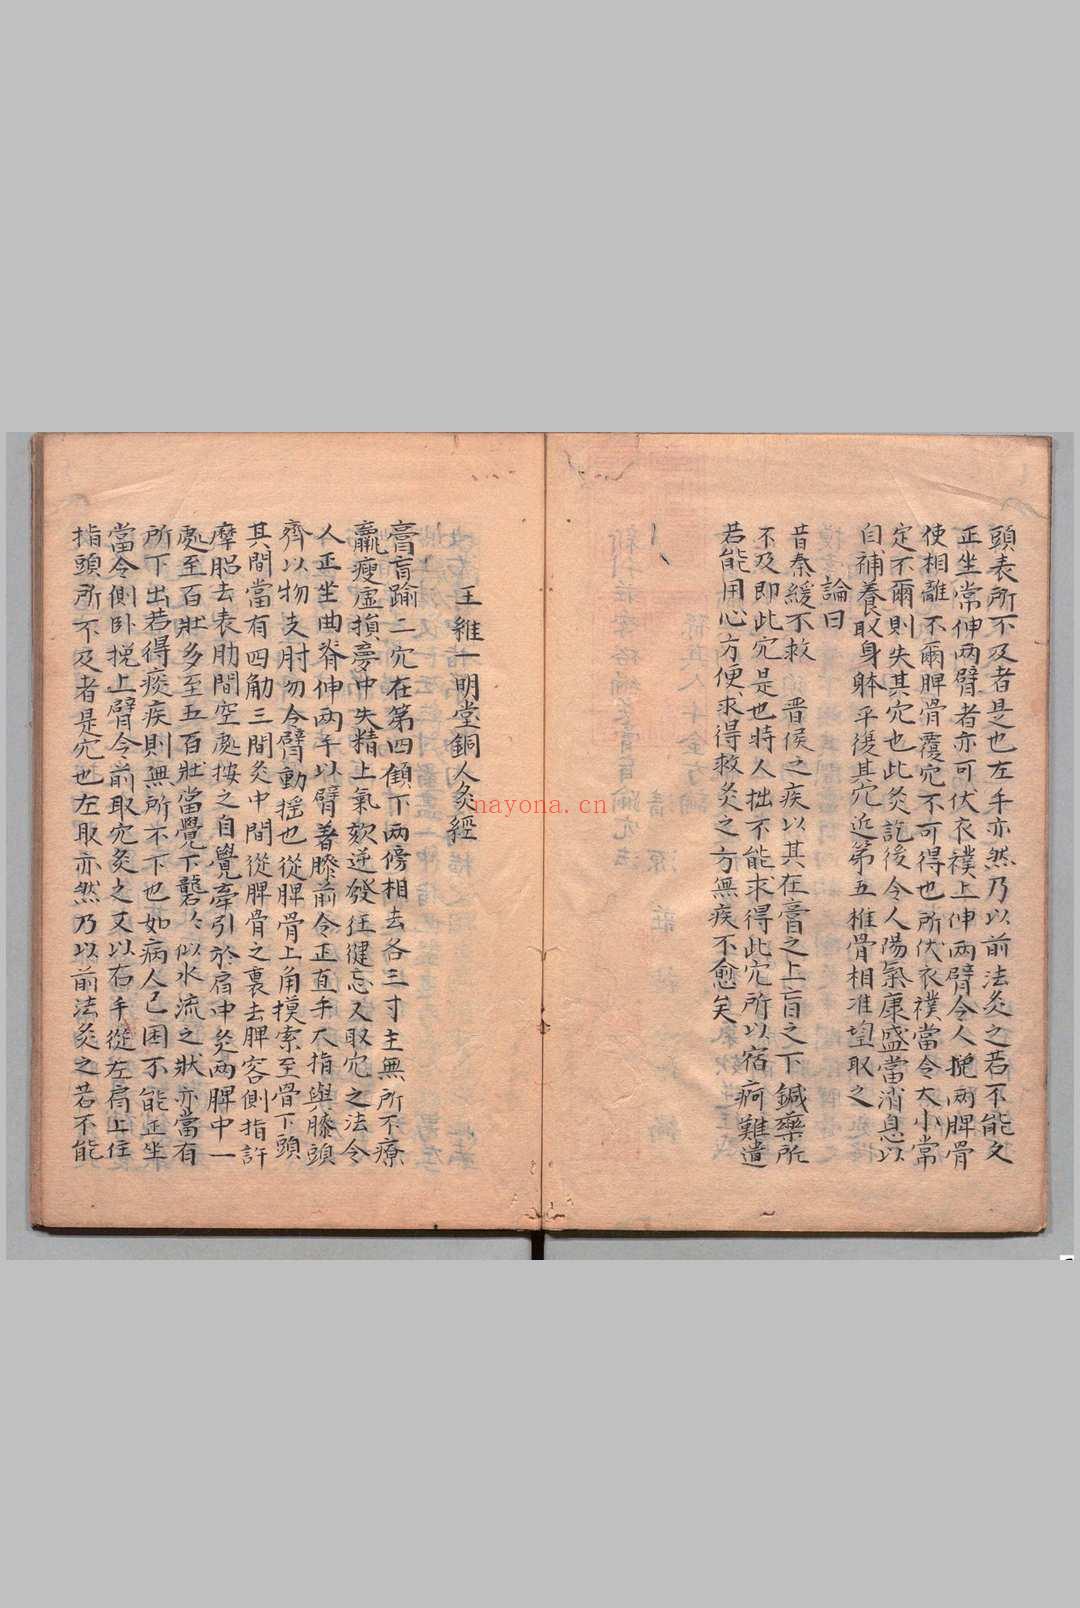 頭表所不及者是也左手亦然乃以前法灸之若不能久
正坐常伸兩臂者亦可伏衣襆上伸兩臂令人挽兩脾骨
使相離不爾脾骨覆穴不可得也所伏衣襆當令大小常
定不爾則失其穴也此灸訖後令人陽氣康盛當消息以
自補養取身躰平復其穴近第五椎骨相准望取之
論曰
昔秦緩不救晋侯之疾以其在膏之上盲之下鍼藥所
不及即此穴是也時人拙不能求得此穴所以宿痾難遣
若能用心方便求得救灸之方無疾不愈矣
王維一明堂銅人灸經
膏盲踰二穴在第四顀下兩傍相去各三寸主無所不療
羸瘦虛損夢中失精上氣欬逆發狂健忘又取穴之法令
人正坐曲脊伸兩手以臂著膝前令正直手大指與膝頭
齊以物支肘勿令臂動搖也從脾骨上角摸索至骨下頭
其間當有四肋三間灸中間從脾骨之裏去脾容側指許
摩𦛗去表肋間空處按之自覺牽引於肩中灸兩脾中一
處至百壯多至五百壯當覺下礱礱似水流之狀亦當有
所下出若得痰疾則無所不下也如病人已困不能正坐
當令側卧挽上臂令前取穴灸之又以右手從左肩上住
指頭所不及者是穴也左取亦然乃以前法灸之若不能
nayona.cn